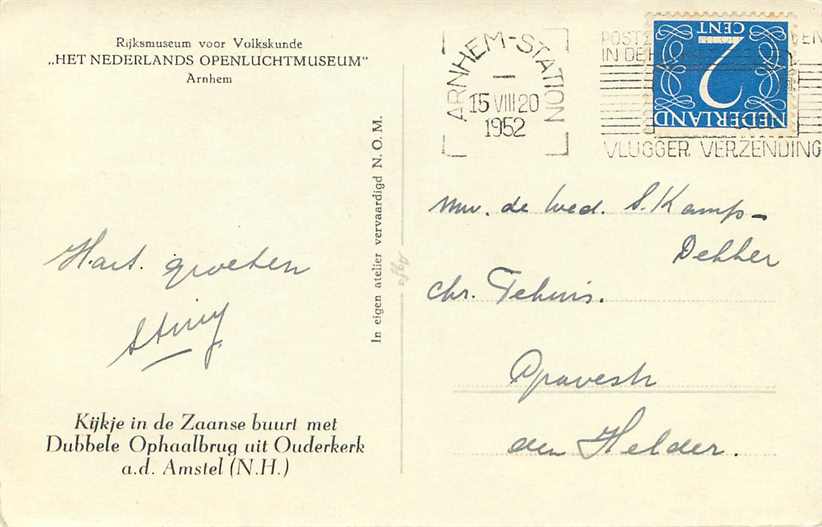 Rijksmuseum voor Volkskunde
„HET NEDERLANDS OPENLUCHTMUSEUM"
Arnhem
ARNHEM-STATION
15 VIII 20
1952
POSTZ
IN DE
VLUGGER VERZENDING
2
CENT
NEDERLAND
In eigen atelier vervaardigd N. O. M.
Hart. groeten
mw. de Wed. S. Kamp-
Dekker
Chr. Tehuis.
den Helder.
Kijkje in de Zaanse buurt met
Dubbele Ophaalbrug uit Ouderkerk
a.d. Amstel (N.H.)